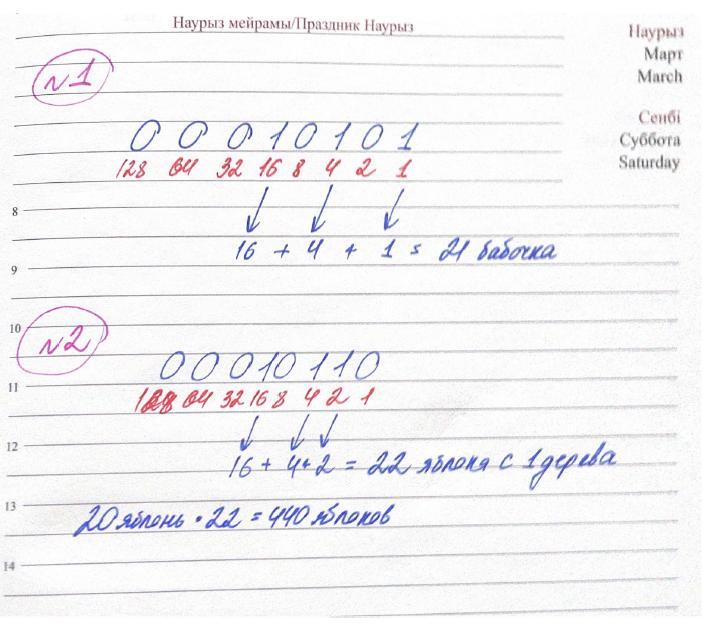 Наурыз мейрамы/Праздник Наурыз
Наурыз
Март
March
Сенбі
Суббота
Saturday
№1
0 0 0 1 0 1 0 1
128 64 32 16 8 4 2 1
8
16 + 4 + 1 = 21 бабочка
9
10
№2
0 0 0 1 0 1 1 0
11
128 64 32 16 8 4 2 1
12
16 + 4 + 2 = 22 яблока с 1 дерева
13
20 яблонь • 22 = 440 яблоков
14